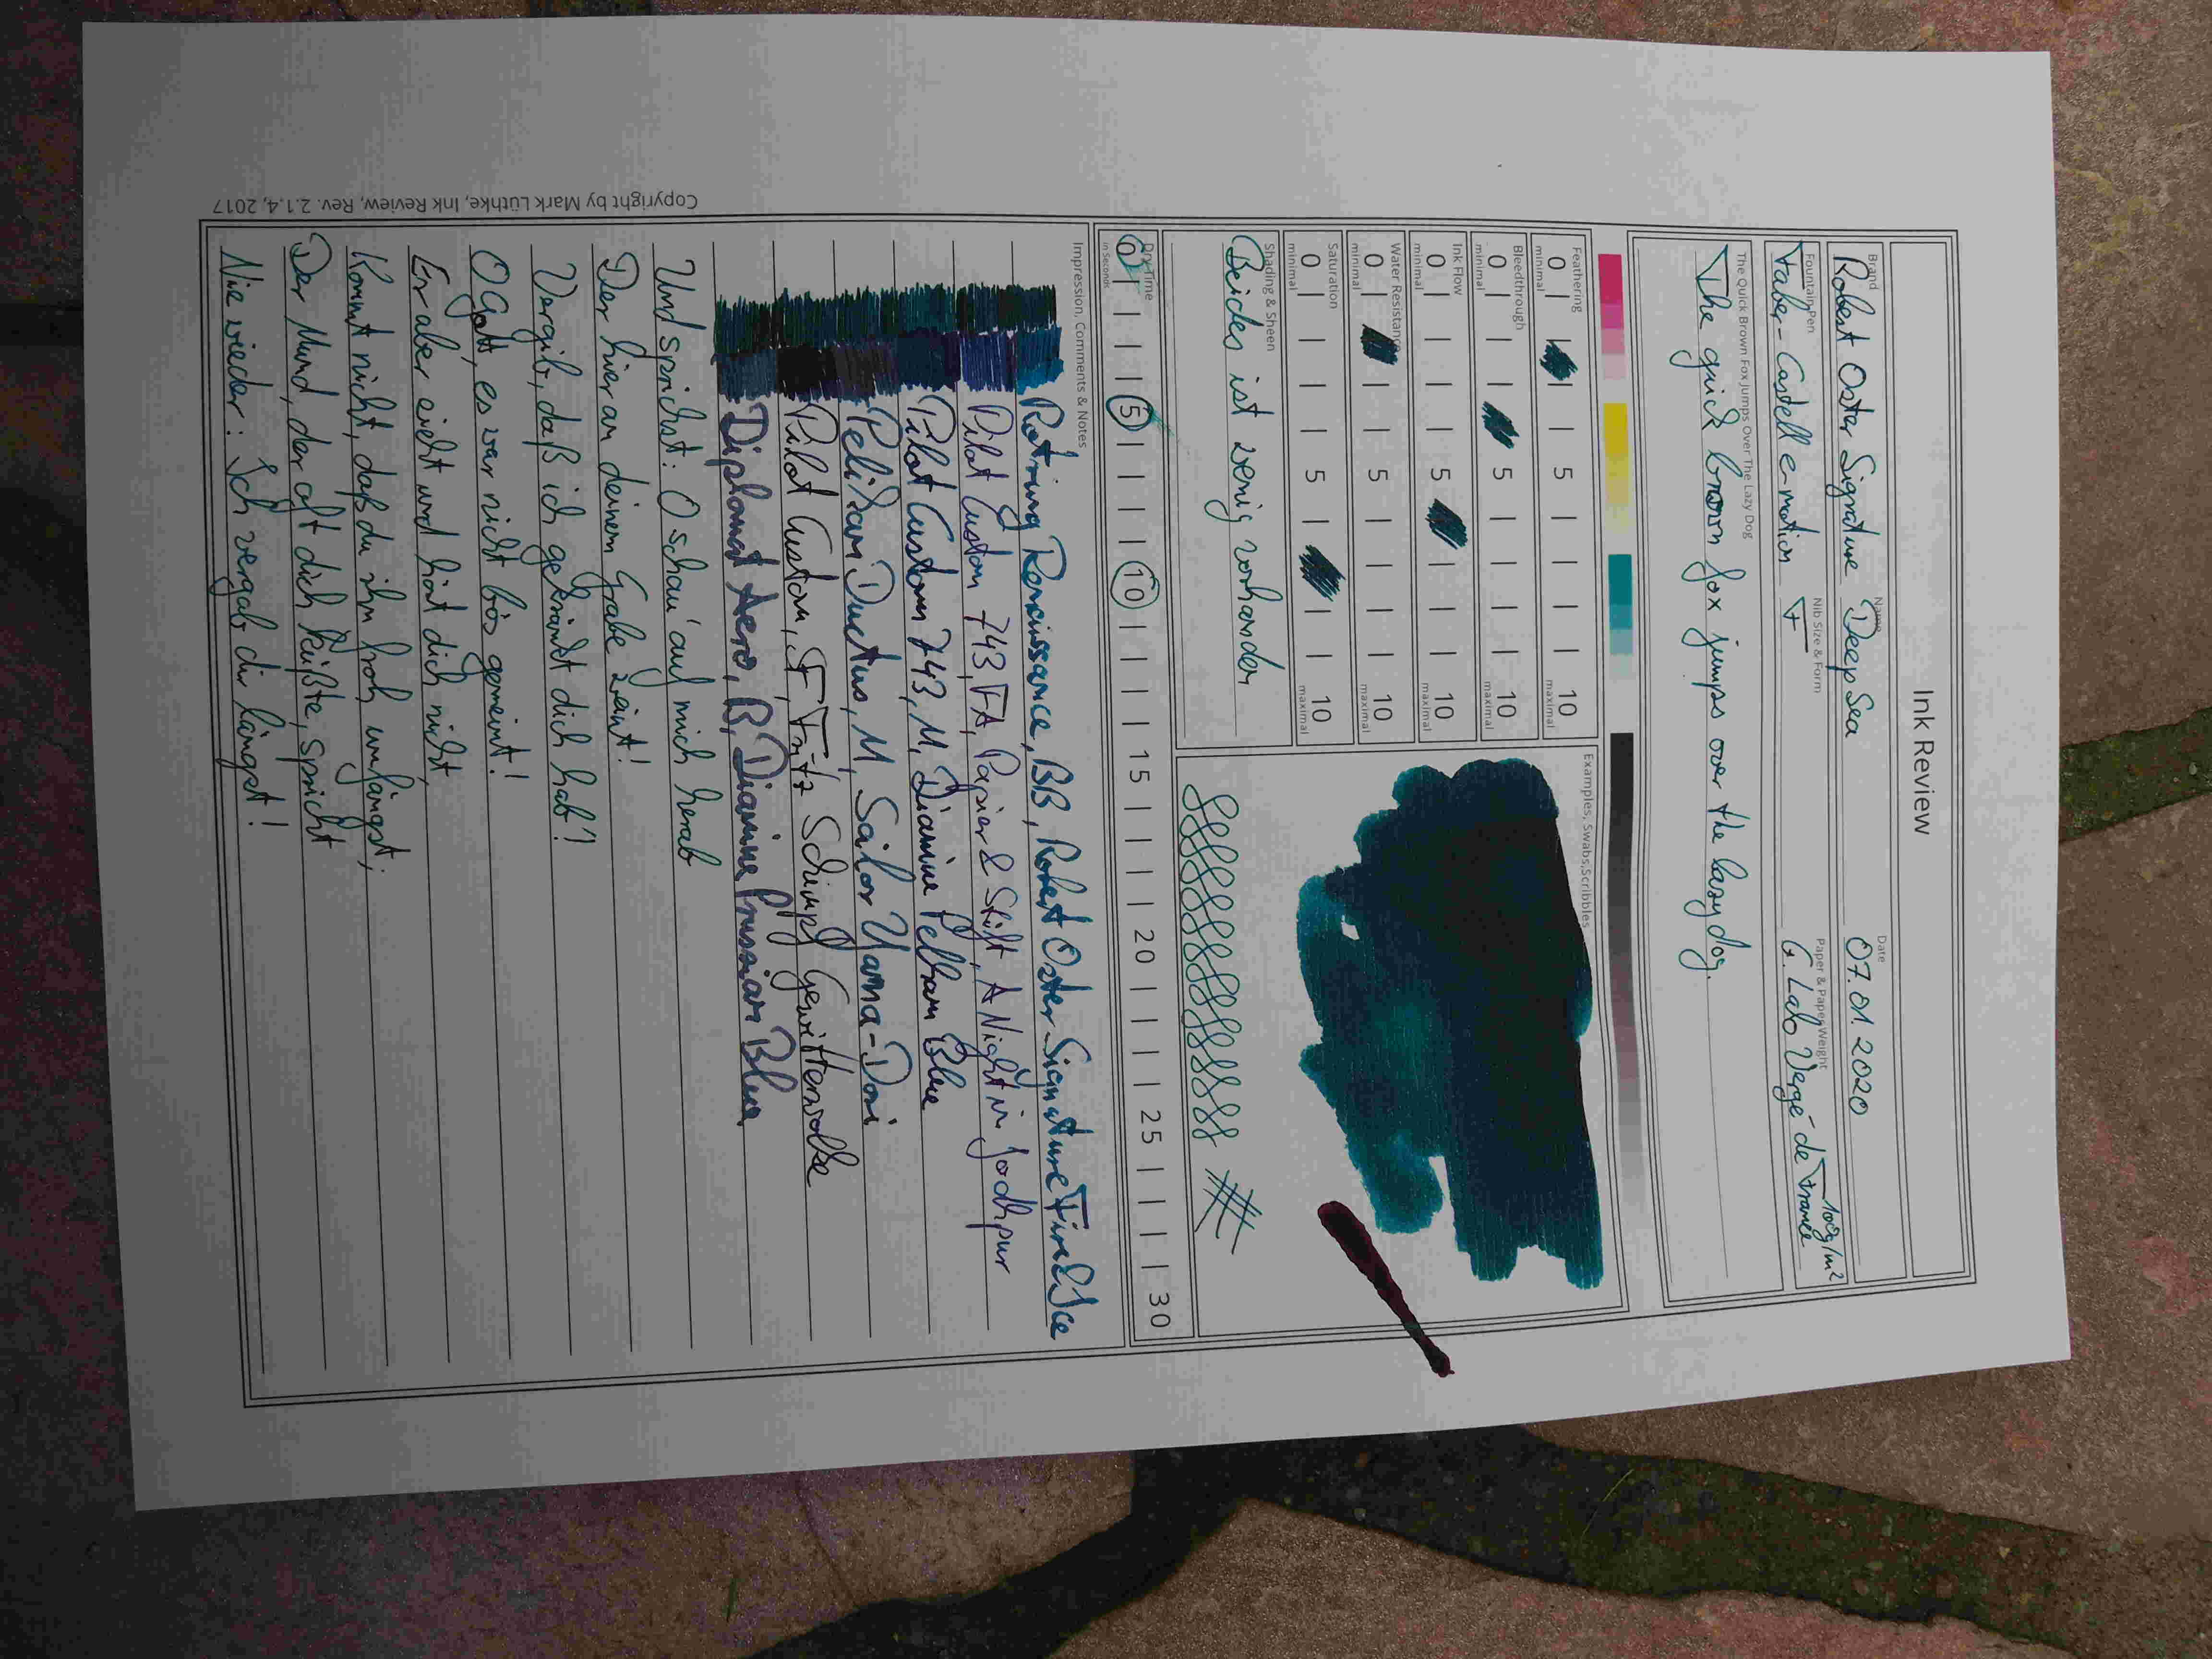 Ink Review
Brand
Robert Oster Signature
Name
Deep Sea
Date
07.01.2020
Fountain Pen
Faber-Castell e-motion
Nib Size & Form
F
Paper & Paper Weight
G. Lalo Vergé de France 100g/m²
The Quick Brown Fox Jumps Over The Lazy Dog
The quick brown fox jumps over the lazy dog.
Feathering
0 | | | 5 | | | | 10
minimal maximal
Bleedthrough
0 | | 5 | | | | 10
minimal maximal
Ink Flow
0 | | | | 5 | | | 10
minimal maximal
Water Resistance
0 | | | 5 | | | | 10
minimal maximal
Saturation
0 | | | | 5 | | | 10
minimal maximal
Shading & Sheen
Beides ist wenig vorhanden
Examples, Swabs, Scribbles
Dry Time
in Seconds
0 | | | | 5 | | | | 10 | | | | 15 | | | | 20 | | | | 25 | | | | 30
Impression, Comments & Notes
Rotring Renaissance, BB, Robert Oster Signature Fire & Ice
Pilot Custom 743, FA, Papier & Stift, A Night in Jodhpur
Pilot Custom 743, M, Diamine Pelham Blue
Pelikan Ductus, M, Sailor Yama-Dori
Pilot Custom, SF, Fritz Schimpf Gewitterwolke
Diplomat Aero, B, Diamine Prussian Blue
Und sprichst: O schau' auf mich herab
Der hier an deinem Grabe weint!
Vergib, daß ich gekränkt dich hab'!
O Gott, es war nicht bös gemeint!
Er aber sieht und hört dich nicht,
Kommt nicht, daß du ihn froh umfängst;
Der Mund, der oft dich küßte, spricht
Nie wieder: Ich vergab dir längst!
Copyright by Mark Lüthke, Ink Review, Rev. 2.1.4, 2017